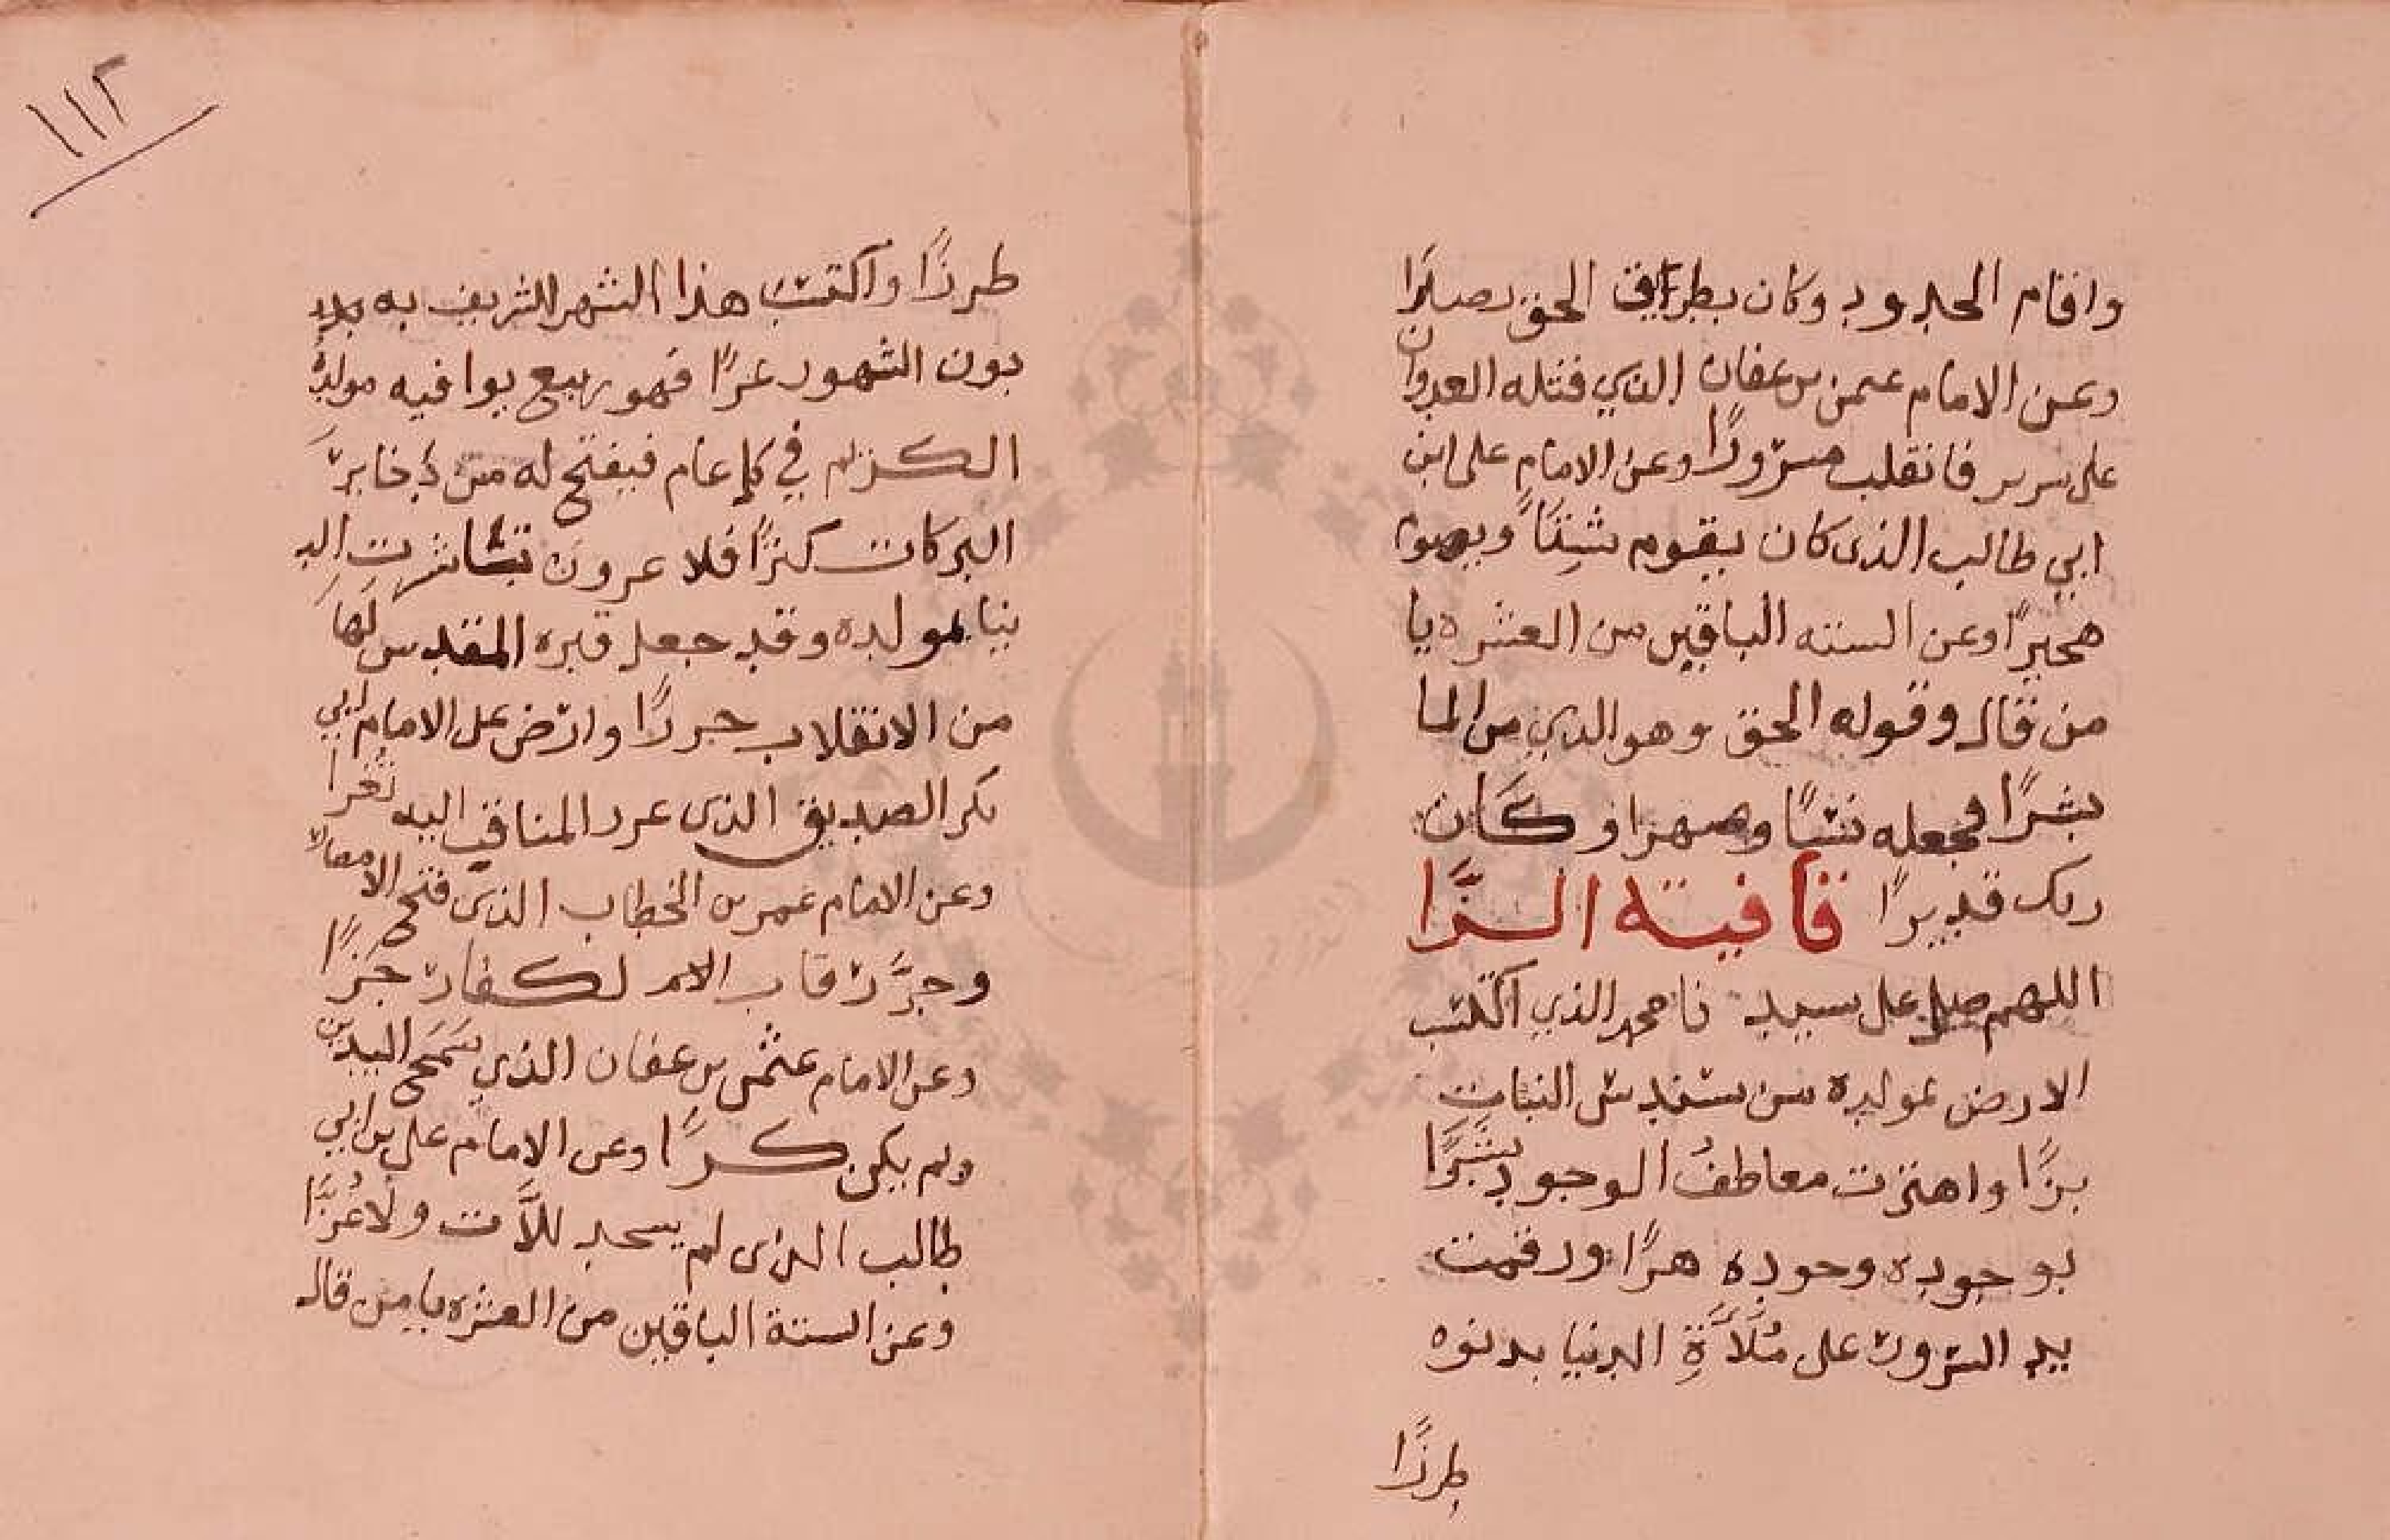 واقام الحدود وكان بطرايق الحق بصيرًا
وعن الامام عثمن بن عفان الذي قتله العدوان
على سرير فانقلب مسرورًا وعن الامام على ابن
ابي طالب الذى كان يقوم شتًا ويصوم
هجيرًا وعن الستة الباقين من العشرة يا
من قال وقوله الحق وهو الذي من الما
بشرًا فجعله نسبًا وصهرا وكان
ربك قديرًا قافية الزا
اللهم صل على سيد نا محمد الذي اكتست
الارض بمولده من سندس النبات
بزًا واهتزت معاطفُ الوجود بشرًا
بوجوده وجوده هزًا ورقمت
يد السرور على مُلَآءَةِ الدنيا بدنوه
طرزًا
١١٢
طرزًا واكتست هذا الشهر الشريف به
بون الشهور عزًا فهو ربيع يوافيه مولده
الكريم في كل عام فيفتح له من ذخاير
البركات كنزًا فلا عرون تباشرت الد
نيا بمولده وقد جعل قبره المقدس لها
من الانقلاب حرزًا وارض على الامام ابي
بكر الصديق الذى المنافق اليه
وعن الامام عمر بن الخطاب الذى فتح الامصار
وجزَّ رقاب الا لكفار جَزًا
وعن الامام عثمن بن عفان الذي سَمَح اليدين
ولم يكن كزًا وعن الامام على بن ابي
طالب الذى لم يسجد للآت ولا عُزَّا
وعن الستة الباقين من العشره يا من قال